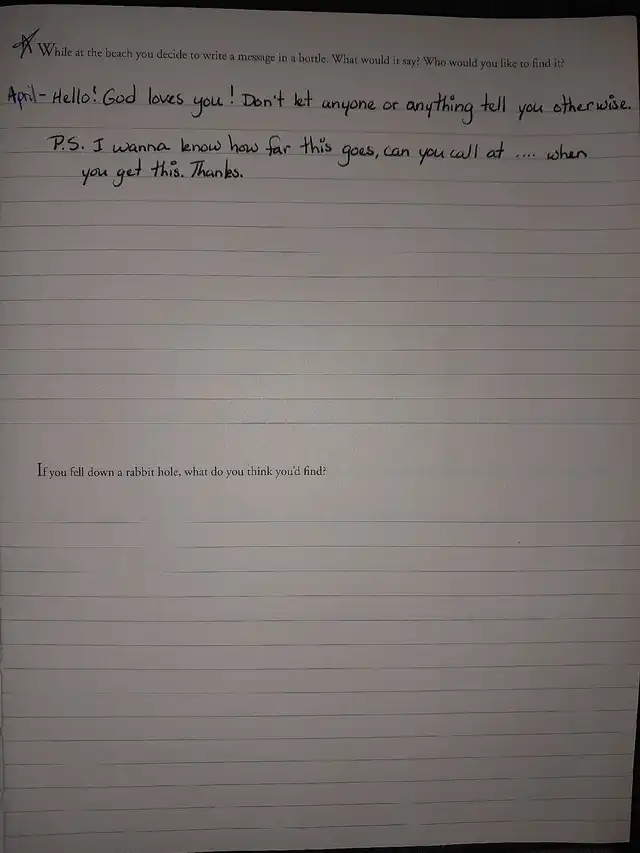 While at the beach you decide to write a message in a bottle. What would it say? Who would you like to find it?
April - Hello! God loves you! Don't let anyone or anything tell you otherwise.
P.S. I wanna know how far this goes, can you call at .... when
you get this. Thanks.
If you fell down a rabbit hole, what do you think you'd find?